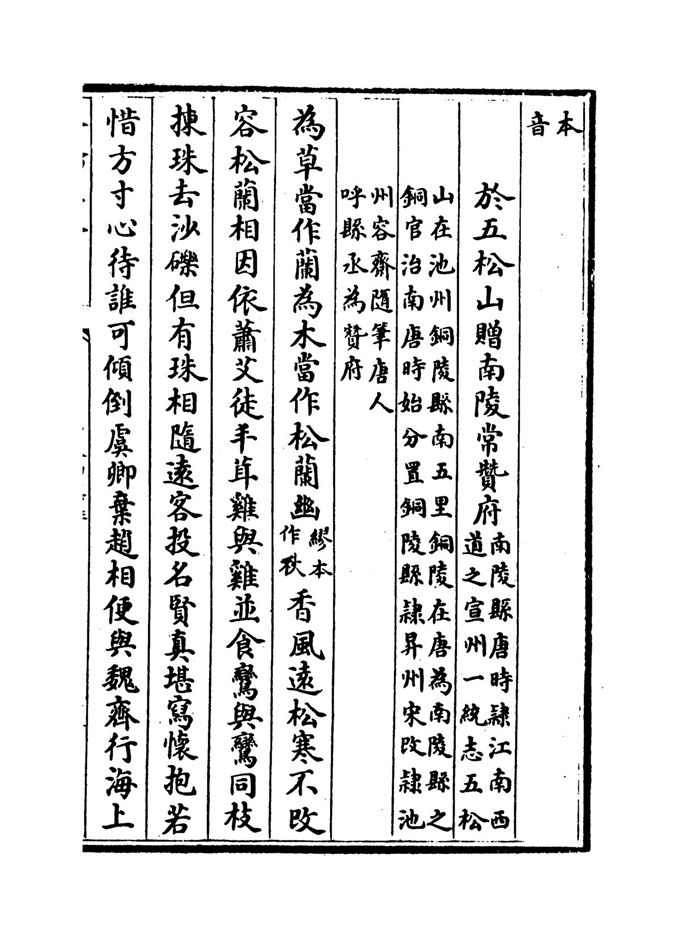 本
音
於五松山贈南陵常贊府
南陵縣唐時隷江南西
道之宣州一統志五松
山在池州銅陵縣南五里銅陵在唐為南陵縣之
銅官治南唐時始分置銅陵縣隷昇州宋改隷池
州容齋隨筆唐人
呼縣丞為贊府
為草當作蘭為木當作松蘭幽繆本作秋香風遠松寒不改
容松蘭相因依蕭艾徒丰茸雞與雞並食鸞與鸞同枝
揀珠去沙礫但有珠相隨遠客投名賢真堪寫懷抱若
惜方寸心待誰可傾倒虞卿棄趙相便與魏齊行海上